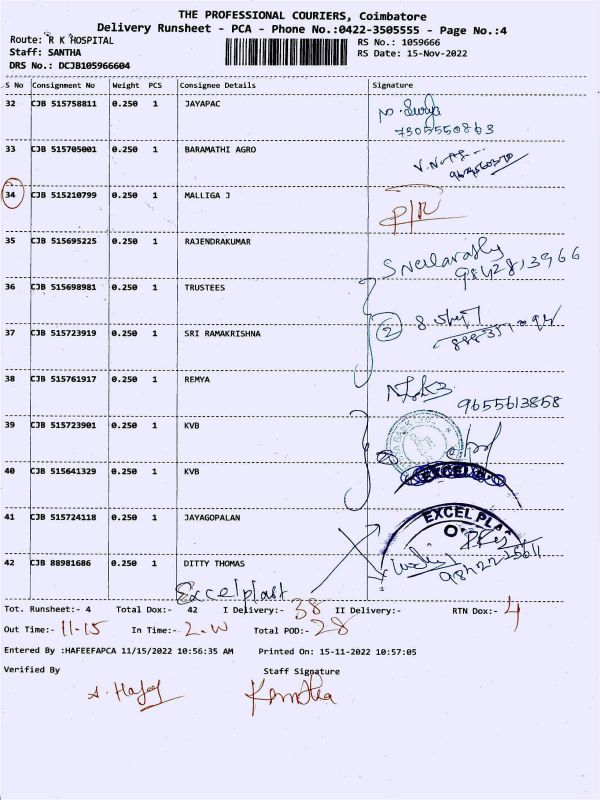 THE PROFESSIONAL COURIERS, Coimbatore
Delivery Runsheet - PCA - Phone No.:0422-3505555 - Page No.:4
Route: R K HOSPITAL
RS No.: 1059666
Staff: SANTHA
RS Date: 15-Nov-2022
DRS No.: DCJB105966604
S No Consignment No Weight PCS Consignee Details Signature
32 CJB 515758811 0.250 1 JAYAPAC
7305550863
33 CJB 515705001 0.250 1 BARAMATHI AGRO
34 CJB 515210799 0.250 1 MALLIGA J
35 CJB 515695225 0.250 1 RAJENDRAKUMAR
9842813966
36 CJB 515698981 0.250 1 TRUSTEES
37 CJB 515723919 0.250 1 SRI RAMAKRISHNA 2
38 CJB 515761917 0.250 1 REMYA
9655613858
39 CJB 515723901 0.250 1 KVB
40 CJB 515641329 0.250 1 KVB
41 CJB 515724118 0.250 1 JAYAGOPALAN EXCEL PLA
42 CJB 88981686 0.250 1 DITTY THOMAS
Excelplast
Tot. Runsheet:- 4 Total Dox:- 42 I Delivery:- 38 II Delivery:- RTN Dox:- 4
Out Time:- 11-15 In Time:- Total POD:- 28
Entered By :HAFEEFAPCA 11/15/2022 10:56:35 AM Printed On: 15-11-2022 10:57:05
Verified By Staff Signature